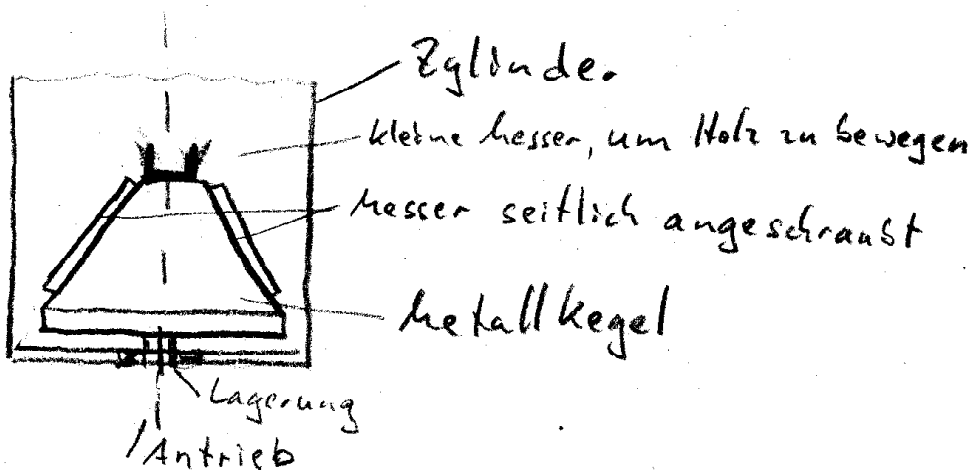 Zylinder
kleine Messer, um Holz zu bewegen
Messer seitlich angeschraubt
Metallkegel
Lagerung
Antrieb